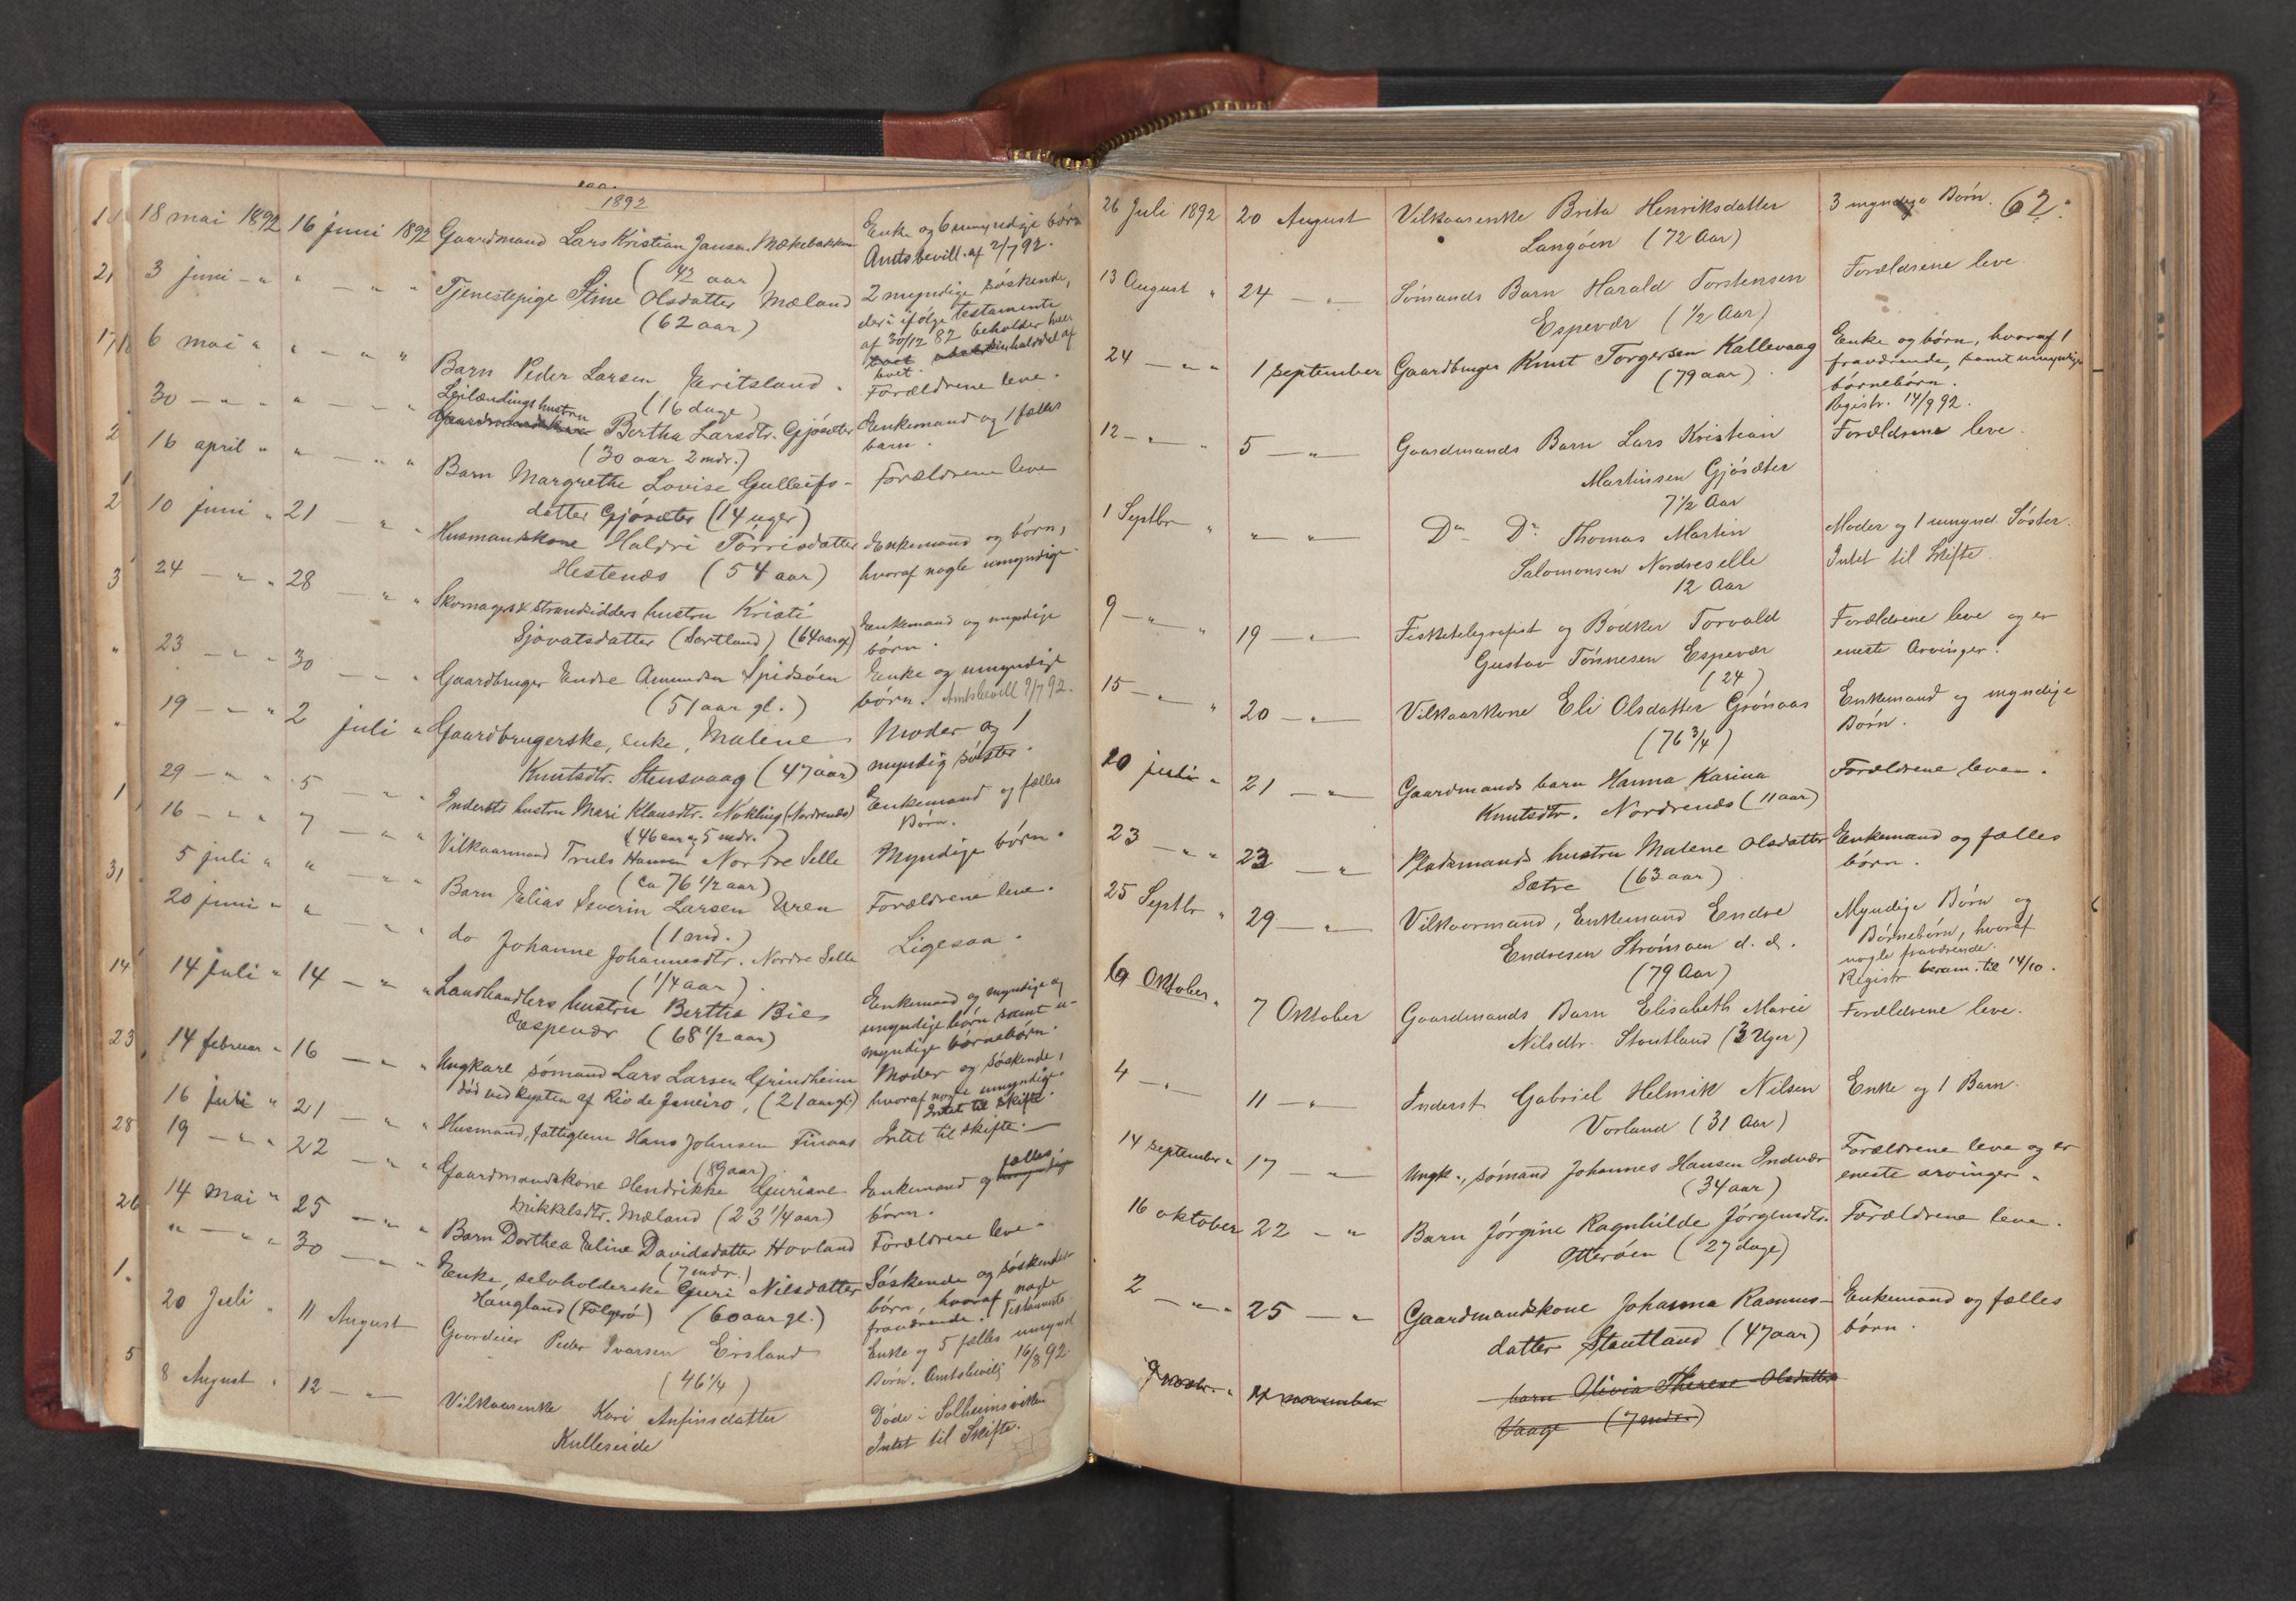 1892
18 mai 1892 16 juni 1892 Gaardmand Lars Kristian Jansen Mækebakken Enke og 6 umyndige børn
(42 aar) Amtsbevill. af 2/7 92.
3 juni - " " - " " Tjenestepige Stine Olsdatter Mæland 2 myndige søskende,
(62 aar) der i følge testamente
af 30/12 82 beholder hver
halvdel af
boet.
6 mai " " - " " Barn Peder Larsen Færitsland. Forældrene leve.
(16 dage)
30 - " " " - " Leilændings hustru
Bertha Larsdtr. Gjøsæter Enkemand og 1 fælles
(30 aar 2 mdr.) barn.
16 april " " - " " Barn Margrethe Lovise Gulleifs- Forældrene leve
datter Gjøsæter (14 uger)
10 juni " 21 - " " Husmandskone Haldri Tørrisdatter Enkemand og børn,
Hestenæs (54 aar) hvoraf nogle umyndige.
24 - " " 28 - " " Skomagers & strandsidders hustru Kristi
Sjovatsdatter (Sortland) (64 aar gl) Enkemand og myndige
børn.
23 - " " 30 - " " Gaardbruger Endre Amundsen Spidsøen Enke og umyndige
(51 aar gl.) børn. Amtsbevill 9/7 92.
19 - " " 2 juli " Gaardbrugerske, enke, Malene Moder og 1
Knutsdtr. Stensvaag (47 aar) myndig søster.
29 - " " 5 - " " Indersts hustru Mari Klausdtr. Nøkling (Nordrenæs) Enkemand og fælles
(46 aar og 5 mdr.) Børn.
16 - " " 7 - " " Vilkaarmand Truls Hansen Nordre Selle Myndige børn.
(ca 76 1/2 aar)
5 juli " " - " " Barn Elias Severin Larsen Uren Forældrene leve.
(1 md.)
20 juni " " - " " do Johanne Johannesdtr. Nordre Selle Ligesaa.
(1/4 aar)
14 juli " 14 - " " Landhandlers hustru Bertha Bie Enkemand og myndige og
Espevær (68 1/2 aar) umyndige børn samt u-
myndige børnebørn.
14 februar " 16 - " " Ungkarl sømand Lars Larsen Grindheim Moder og søskende,
død ved kysten af Rio de Janeiro, (21 aar gl.) hvoraf nogle umyndige.
Intet til skifte.
16 juli " 21 - " " Husmand, fattiglem Hans Johnsen Finaas Intet til skifte. -
(89 aar).
19 - " " 22 - " " Gaardmandskone Hendrikke Guriane Enkemand og fælles
Mikkelsdtr. Mæland (23 1/4 aar) børn.
14 mai " 25 - " " Barn Dorthea Eline Davidsdatter Hovland Forældrene leve.
(7 mdr.)
" - " " 30 - " " Enke, selvholderske Guri Nilsdatter Søskende og søskende-
Haugland (Folgerø) (60 aar gl.) børn, hvoraf nogle
fraværende. Testamente.
20 Juli " 11 August Gaardeier Peder Ivarsen Eirsland Enke og 5 fælles umynd
(46 1/4) Børn. Amtsbevilg 16/8 92.
8 August " 12 - " Vilkaarsenke Kari Anfinsdatter Døde i Solheimsviken
Kulleseide Intet til Skifte.
62.
26 Juli 1892 20 August Vilkaarsenke Brita Henriksdatter 3 myndige Børn.
Langøen (72 Aar)
13 August " 24 - " Sømands Barn Harald Torstensen Forældrene leve.
Espevær (1/2 Aar)
24 - " " 1 september Gaardbruger Knut Torgersen Kallevaag Enke og børn, hvoraf 1
(79 aar) fraværende, samt umyndige
børnebørn.
Registr. 14/9 92.
12 - " " 5 - " Gaardmands Barn Lars Kristian Forældrene leve.
Martinsen Gjøsæter
7 1/2 Aar
1 Septbr " " - " Do Do Thomas Martin Moder og 1 umynd. Søster.
Salomonsen Nordreselle Intet til Skifte.
12 Aar
9 - " " 19 - " Fisketelegrafist og Bødker Torvald Forældrene leve og er
Gustav Tønnesen Espevær eneste Arvinger.
(24)
15 - " " 20 - " Vilkaarskone Eli Olsdatter Grønaas Enkemand og myndige
(76 3/4) Børn.
20 juli " 21 - " Gaardmands barn Hanna Karina Forældrene leve.
Knutsdtr. Nordrenæs (11 aar)
23 - " " 23 - " Pladsmands hustru Malene Olsdatter Enkemand og fælles
Sætre (63 aar) børn.
25 Septbr " 29 - " Vilkaarmand, Enkemand Endre Myndige Børn og
Endresen Strømøen d. æ. Børnebørn, hvoraf
(79 Aar) nogle fraværende.
Registr. beram. til 14/10.
6 Oktober " 7 Oktober Gaardmands Barn Elisabeth Marie Forældrene leve.
Nilsdtr. Stoutland (3 Uger)
4 - " 11 - " Inderst Gabriel Helmik Nilsen Enke og 1 Barn.
Vorland (31 Aar)
14 september " 17 - " Ungk., sømand Johannes Hansen Indvær Forældrene leve og er
(34 aar) eneste arvinger.
16 oktober 22 - " Barn Jørgine Ragnhilde Jørgensdtr. Forældrene leve.
Otterøen (27 dage)
2 - " " 25 - " Gaardmandskone Johanna Rasmus- Enkemand og fælles
datter Stoutland (47 aar) børn.
novbr. " 4 november barn Olivia Therese Olsdatter
Vaage (7 mdr)